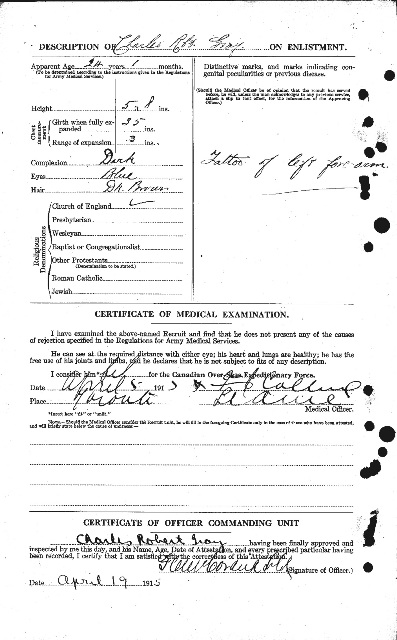 DESCRIPTION OF Charles Robt Gray ON ENLISTMENT.
Apparent Age 24 years 1 months.
(To be determined according to the instructions given in the Regulations for Army Medical Services.)
Distinctive marks, and marks indicating congenital peculiarities or previous disease.
(Should the Medical Officer be of opinion that the recruit has served before, he will, unless the man acknowledges to any previous service, attach a slip to that effect, for the information of the Approving Officer.)
Height 5 8 ins.
Chest measurement
Girth when fully expanded 35 ins.
Range of expansion 3 ins.
Complexion Dark
Eyes Blue
Hair Dk. Brown
Tattoo of left forearm
Religious Denominations
Church of England
Presbyterian
Wesleyan
Baptist or Congregationalist
Other Protestants
(Denomination to be stated.)
Roman Catholic
Jewish
CERTIFICATE OF MEDICAL EXAMINATION.
I have examined the above-named Recruit and find that he does not present any of the causes
of rejection specified in the Regulations for Army Medical Services.
He can see at the required distance with either eye; his heart and lungs are healthy; he has the
free use of his joints and limbs, and he declares that he is not subject to fits of any description.
I consider him* fit for the Canadian Over-Seas Expeditionary Force.
Date April 8 1915
Place Toronto
Medical Officer.
*Insert here "fit" or "unfit."
NOTE.—Should the Medical Officer consider the Recruit unfit, he will fill in the foregoing Certificate only in the case of those who have been attested, and will briefly state below the cause of unfitness:—
CERTIFICATE OF OFFICER COMMANDING UNIT
Charles Robert Gray having been finally approved and
inspected by me this day, and his Name, Age, Date of Attestation, and every prescribed particular having
been recorded, I certify that I am satisfied with the correctness of this Attestation.
(Signature of Officer.)
Date April 19 1915